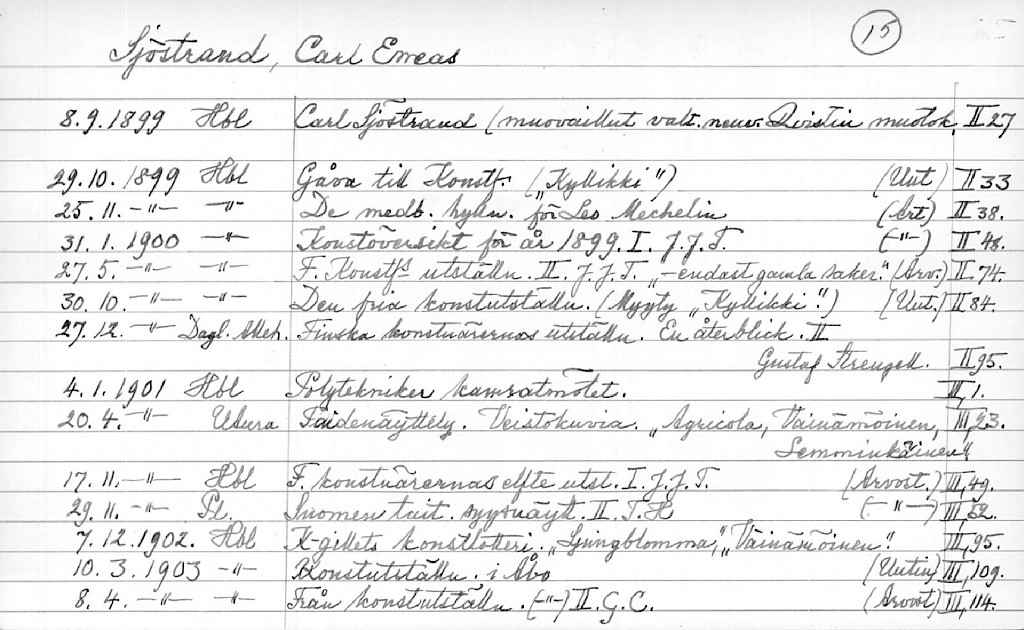 15
Sjöstrand, Carl Eneas
8.9.1899 Hbl Carl Sjöstrand (muovaillut valt.neuv. Qvistin muotok. II 27
29.10.1899 Hbl Gåva till Konstf. („Kyllikki") (Uut) II 33
25.11. -"- -"- De medb. hylln. för Leo Mechelin (Art) II 38.
31.1.1900 -"- Konstöversikt för år 1899. I. J.J.T. (-"-) II 48.
27.5. -"- -"- F. Konstf:s utställn. II. J.J.T. „-endast gamla saker." (Arv.) II 74.
30.10. -"- -"- Den fria konstutställn. (Myyty „Kyllikki") (Uut.) II 84.
27.12. -"- Dagl. Finska konstnärernas utställn. En återblick. II
Gustaf Strengell. II 95.
4.1.1901 Hbl Polytekniker kamratmötet. III, 1.
20.4. -"- Utura Taidenäyttely. Veistokuvia. „Agricola, Väinämöinen, III, 23.
Lemminkäinen".
17.11. -"- Hbl F. konstnärernas elfte utst. I. J.J.T. (Arvost.) III, 49.
29.11. -"- Pl. Suomen tait. syysnäyt. II. T.H (-"-) III, 52.
7.12.1902. Hbl K-gillets konstlotteri. „Ljungblomma", „Väinämöinen". III, 95.
10.3.1903 -"- Konstutställn. i Åbo (Uutin) III, 109.
8.4. -"- -"- Från konstutställn. (-"-) II. G.C. (Arvost) III, 114.